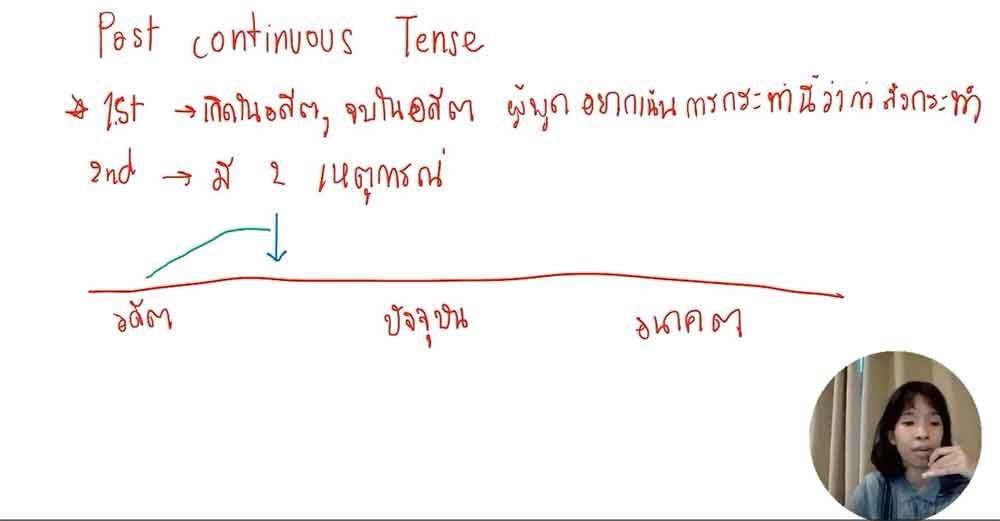 Past continuous Tense
1st → เกิดในอดีต, จบในอดีต ผู้พูด อยากเน้น การกระทำนี้ว่า กำลังกระทำ
2nd → มี 2 เหตุการณ์
อดีต ปัจจุบัน อนาคต